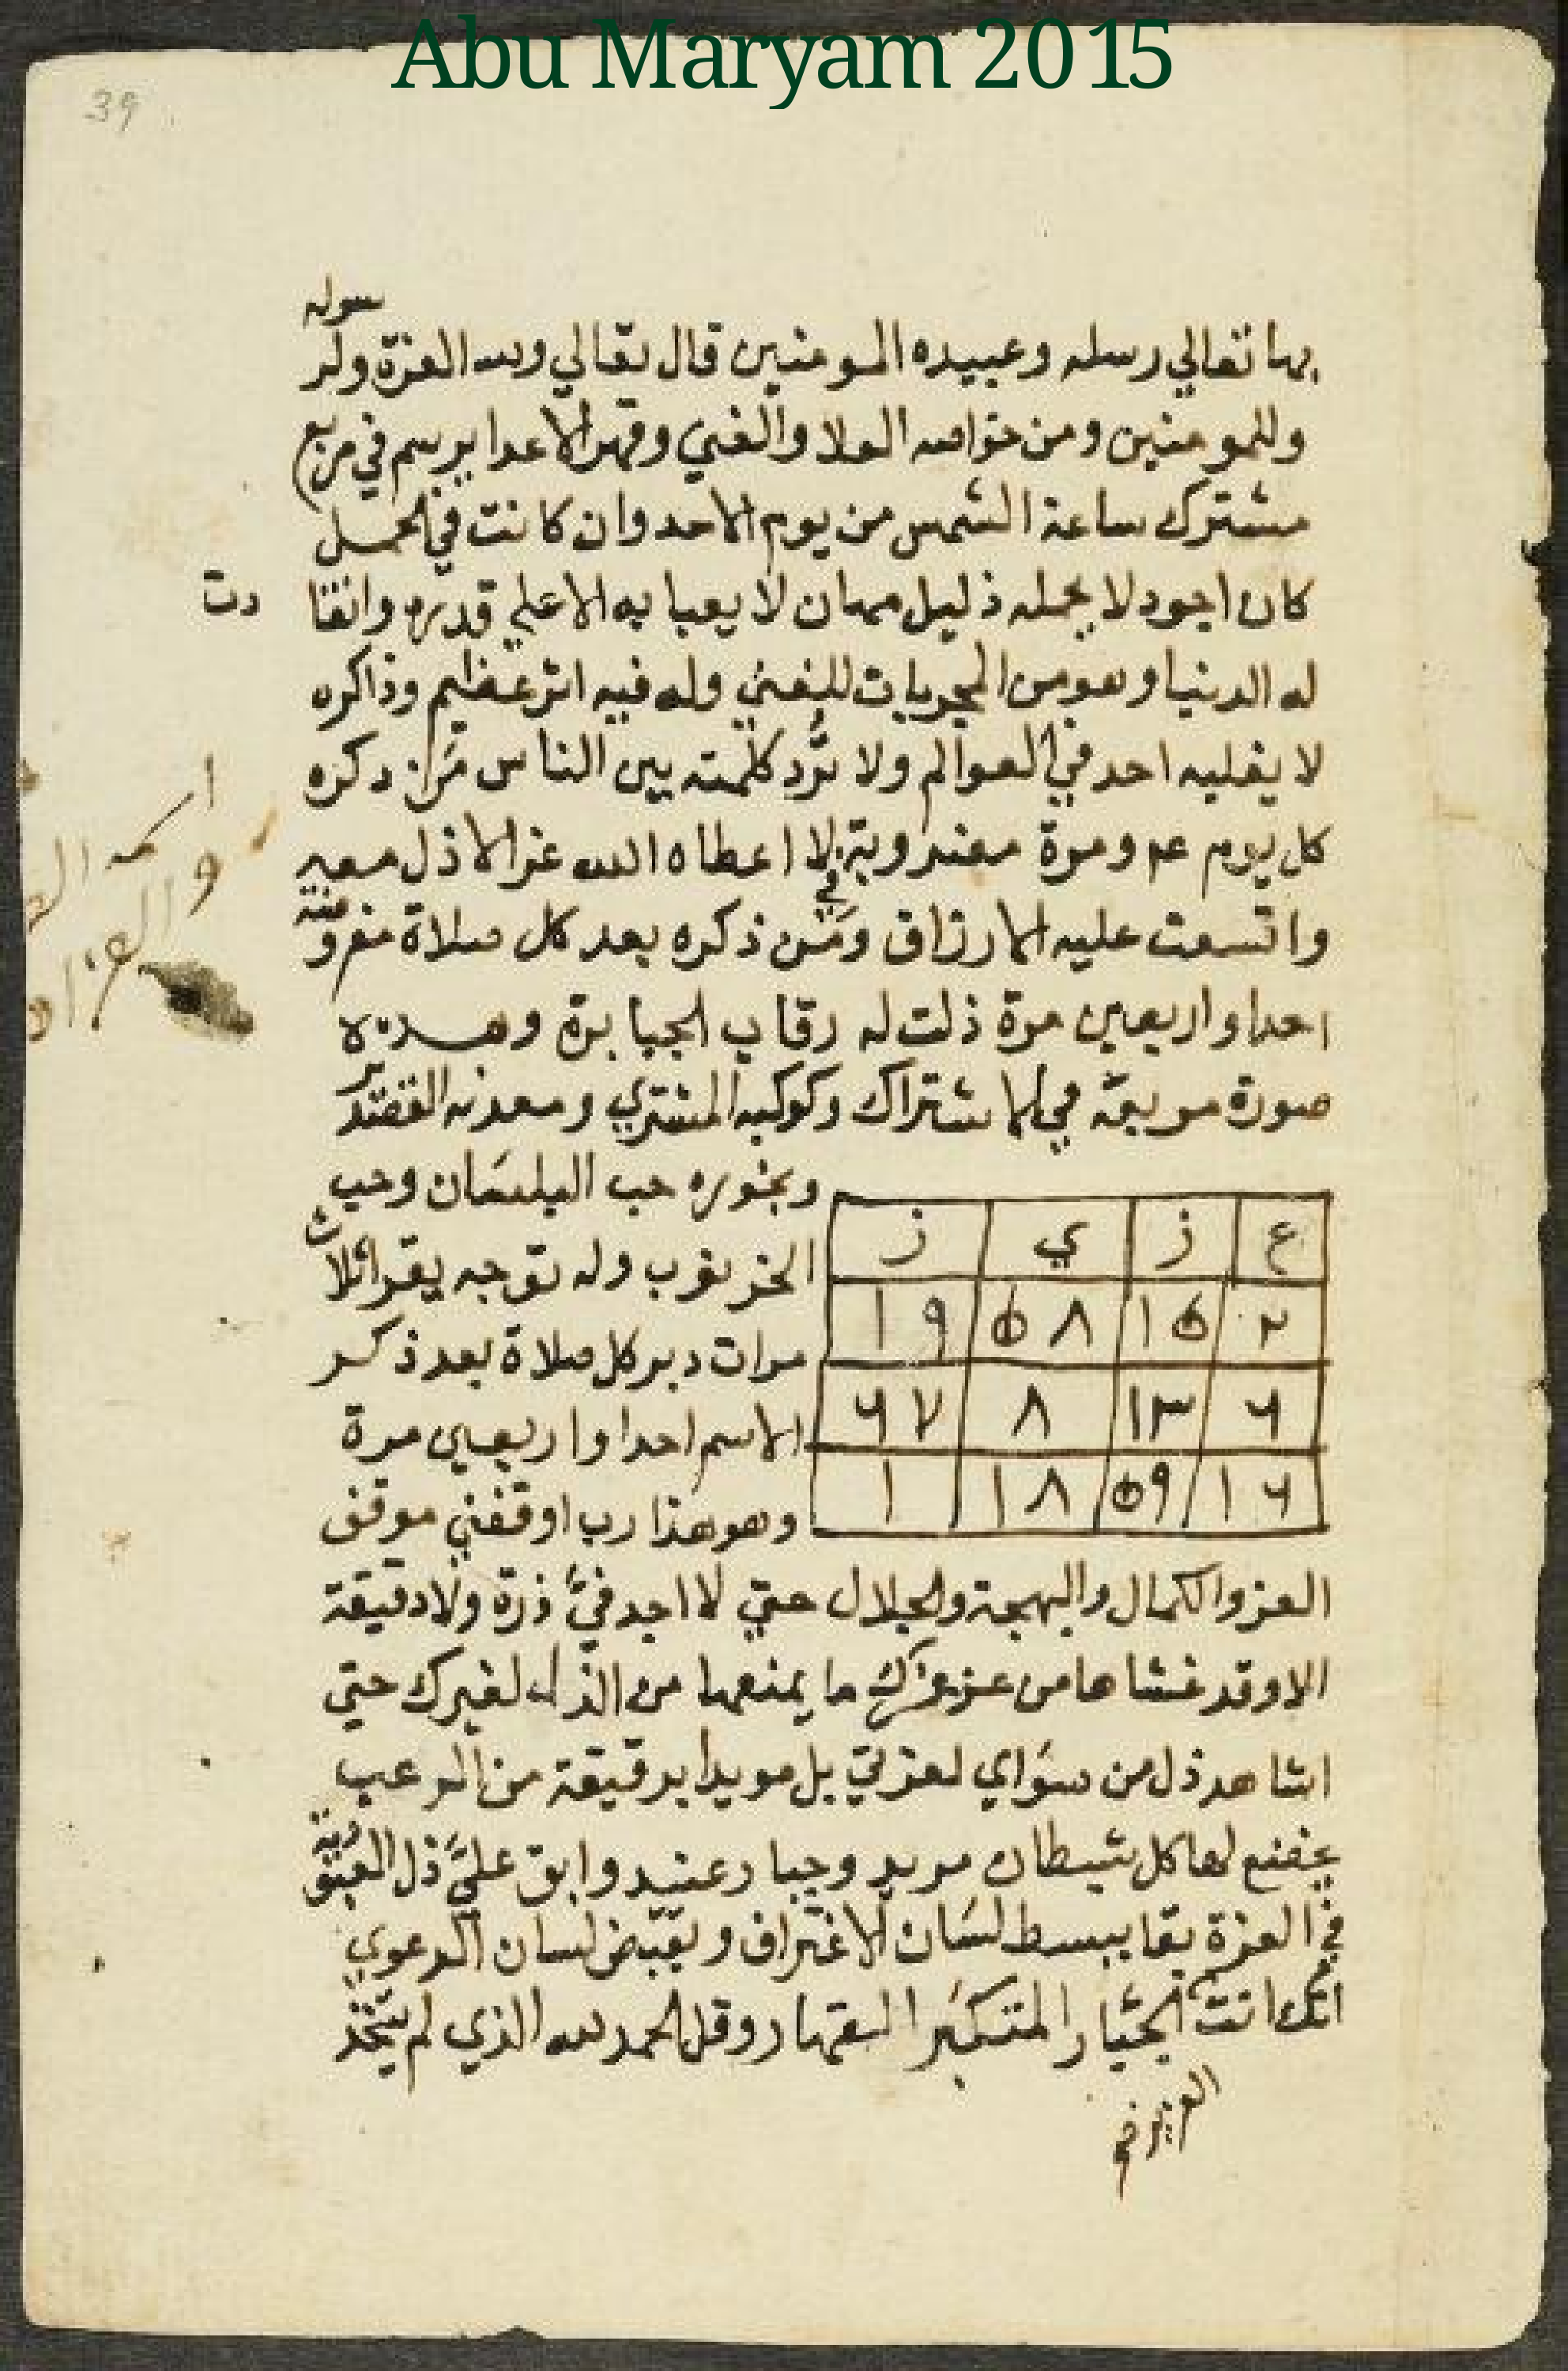 Abu Maryam 2015
39
بها تعالي رسله وعبيده المومنين قال تعالي ولله العزة ولرسوله
وللمومنين ومن خواصه الولا والغني وقهر الاعدا يرسم في مربع
مشترك ساعة الشمس من يوم الاحد وان كانت في الحمل
كان اجود لا يحمله ذليل مهان لا يعبا به الا علي قدره وانقادت
له الدنيا وهو من المجربات للغني وله فيه اثر عظيم وذاكره
لا يغلبه احد في العوالم ولا ترد كلمته بين الناس من ذكره
كل يوم مرة الا اعطاه الله عز الا ذل معه
واتسعت عليه الارزاق ومن ذكره بعد كل صلاة مفروضة
احدا واربعين مرة ذلت له رقاب الجبابرة وهذه
صورة مربعة في الاشتراك وكوكبه المشتري ومعدنه القصدير
وبخوره حب البلسان وحب
الخرنوب وله توجه يقرا ثلاث
مرات دبر كل صلاة بعد ذكر
الاسم احدا واربعين مرة
وهو هذا رب اوقفني موقف
ع ز ي ز
٢ ١٥ ٥٨ ١٩
٦ ١٣ ٨ ٦٧
١٦ ٥٩ ١٨ ١
العز والكمال والبهجة والجلال حتي لا اجد فيَّ ذرة ولا دقيقة
الا وقد غشاها من عز عزك ما يمنعها من الذل لغيرك حتي
اشاهد ذل من سواي لعزتي بل مويدا برقيقة من الرعب
يخضع لها كل شيطان مريد وجبار عنيد وابق عليَّ ذل العبودية
في العزة بقا يبسط لسان الاعتراف ويقبض لسان الدعوي
انك انت الجبار المتكبر القهار وقل الحمد لله الذي لم يتخذ
العزيز في